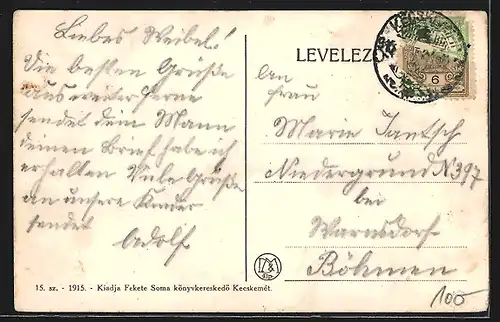 Liebes Weibel!
Die besten Grüße
aus weiter Ferne
sendet dein Mann
deinen Brief habe ich
erhalten Viele Grüße
an unsere Kinder
sendet
Adolf
15. sz. - 1915. - Kiadja Fekete Soma könyvkereskedő Kecskemét.
LEVELEZŐ
6
An
Frau
Marie Jantsch
Niedergrund N 397
bei
Warnsdorf
Böhmen
100